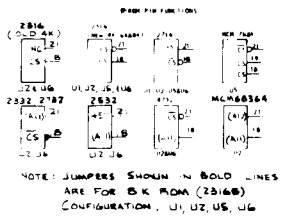 PIN FUNCTIONS
2316
(OLD 4K)
NC 21
CS 18
U2 U6
2316
NEW 4K
21
CS 18
U1, U2, U5, U6
2716
21
18
MCM 7681
21
CS
19
CS 18
U5
2332 2732
(A11) 21
CS 18
U2 U6
2532
+5 21
(A11) 18
U2 U6
4732
CS 21
(A11) 18
U2 U6
MCM68364
(A12) 21
(A11) 18
U2
NOTE: JUMPERS SHOWN IN BOLD LINES
ARE FOR 8K ROM (2316B)
CONFIGURATION, U1, U2, U5, U6